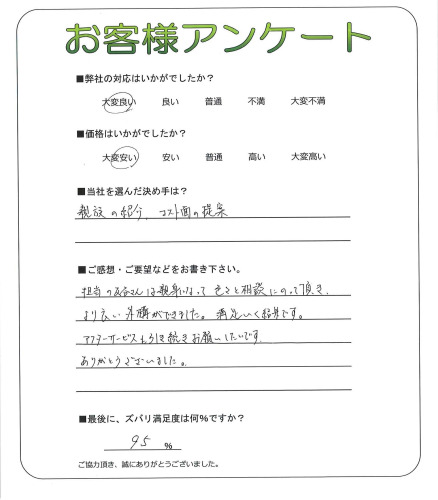 お客様アンケート
■弊社の対応はいかがでしたか？
大変良い 良い 普通 不満 大変不満
■価格はいかがでしたか？
大変安い 安い 普通 高い 大変高い
■当社を選んだ決め手は？
の紹介、コスト面の提案
■ご感想・ご要望などをお書き下さい。
担当の さんは親身になって色々と相談にのって頂き、
より良い外構ができました。満足いく結果です。
アフターサービスも引き続きお願いしたいです。
ありがとうございました。
■最後に、ズバリ満足度は何%ですか？
95 %
ご協力頂き、誠にありがとうございました。